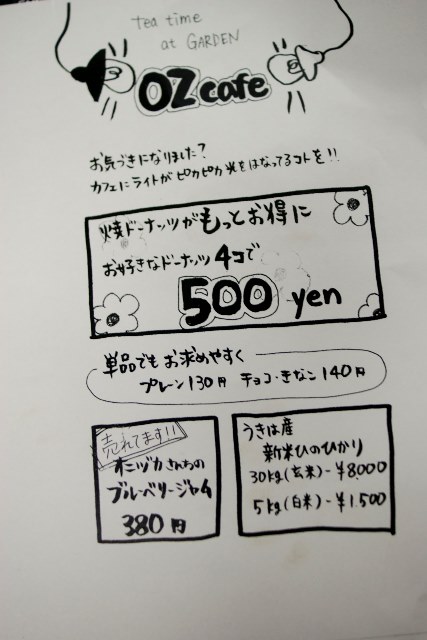 tea time
at GARDEN
OZ cafe
お気づきになりました?
カフェにライトがピカピカ光をはなってるコトを!!
焼ドーナッツがもっとお得に
お好きなドーナッツ4コで
500 yen
単品でもお求めやすく
プレーン130円 チョコ・きなこ140円
売れてます!!
オニヅカさんちの
ブルーベリージャム
380円
うきは産
新米ひのひかり
30kg(玄米)-¥8,000
5kg(白米)-¥1,500